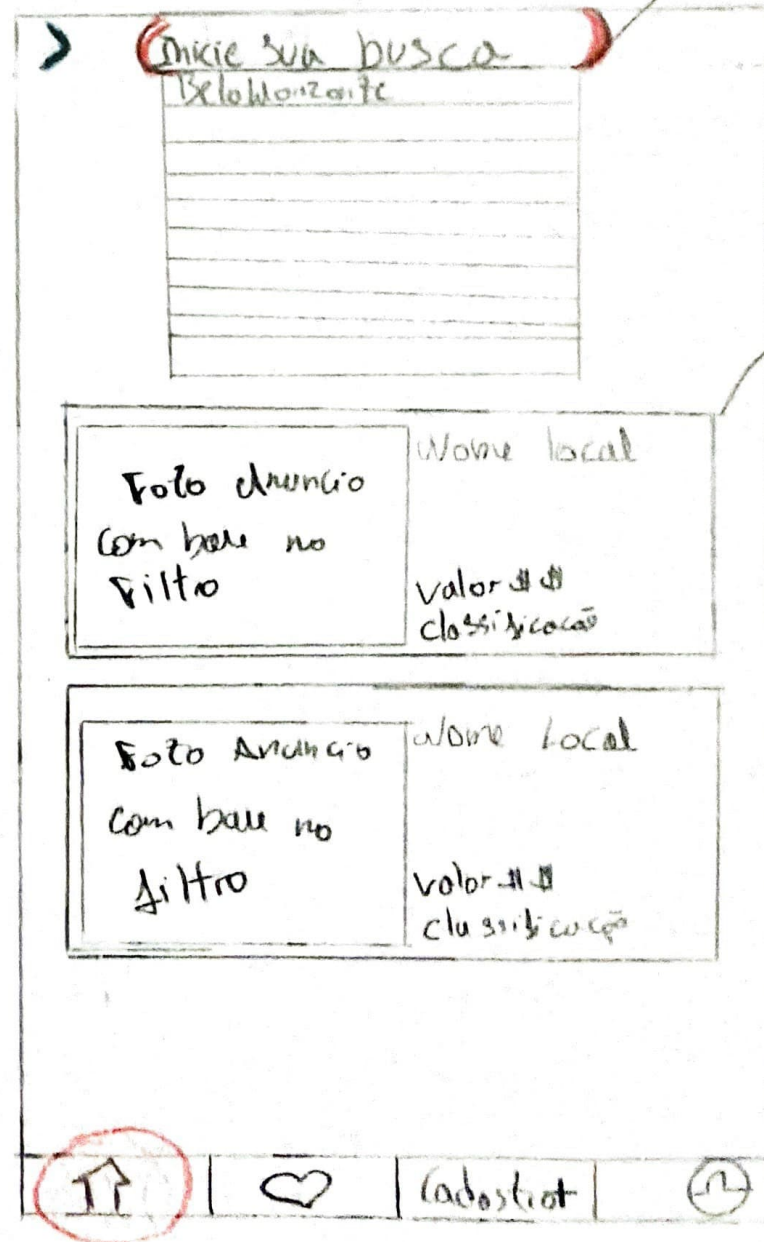 Inicie sua busca
Belo Horizonte
Foto Anuncio
com base no
Filtro
Nome local
valor $$
classificação
Foto Anuncio
com base no
filtro
Nome Local
valor $$
classificação
Cadastrar